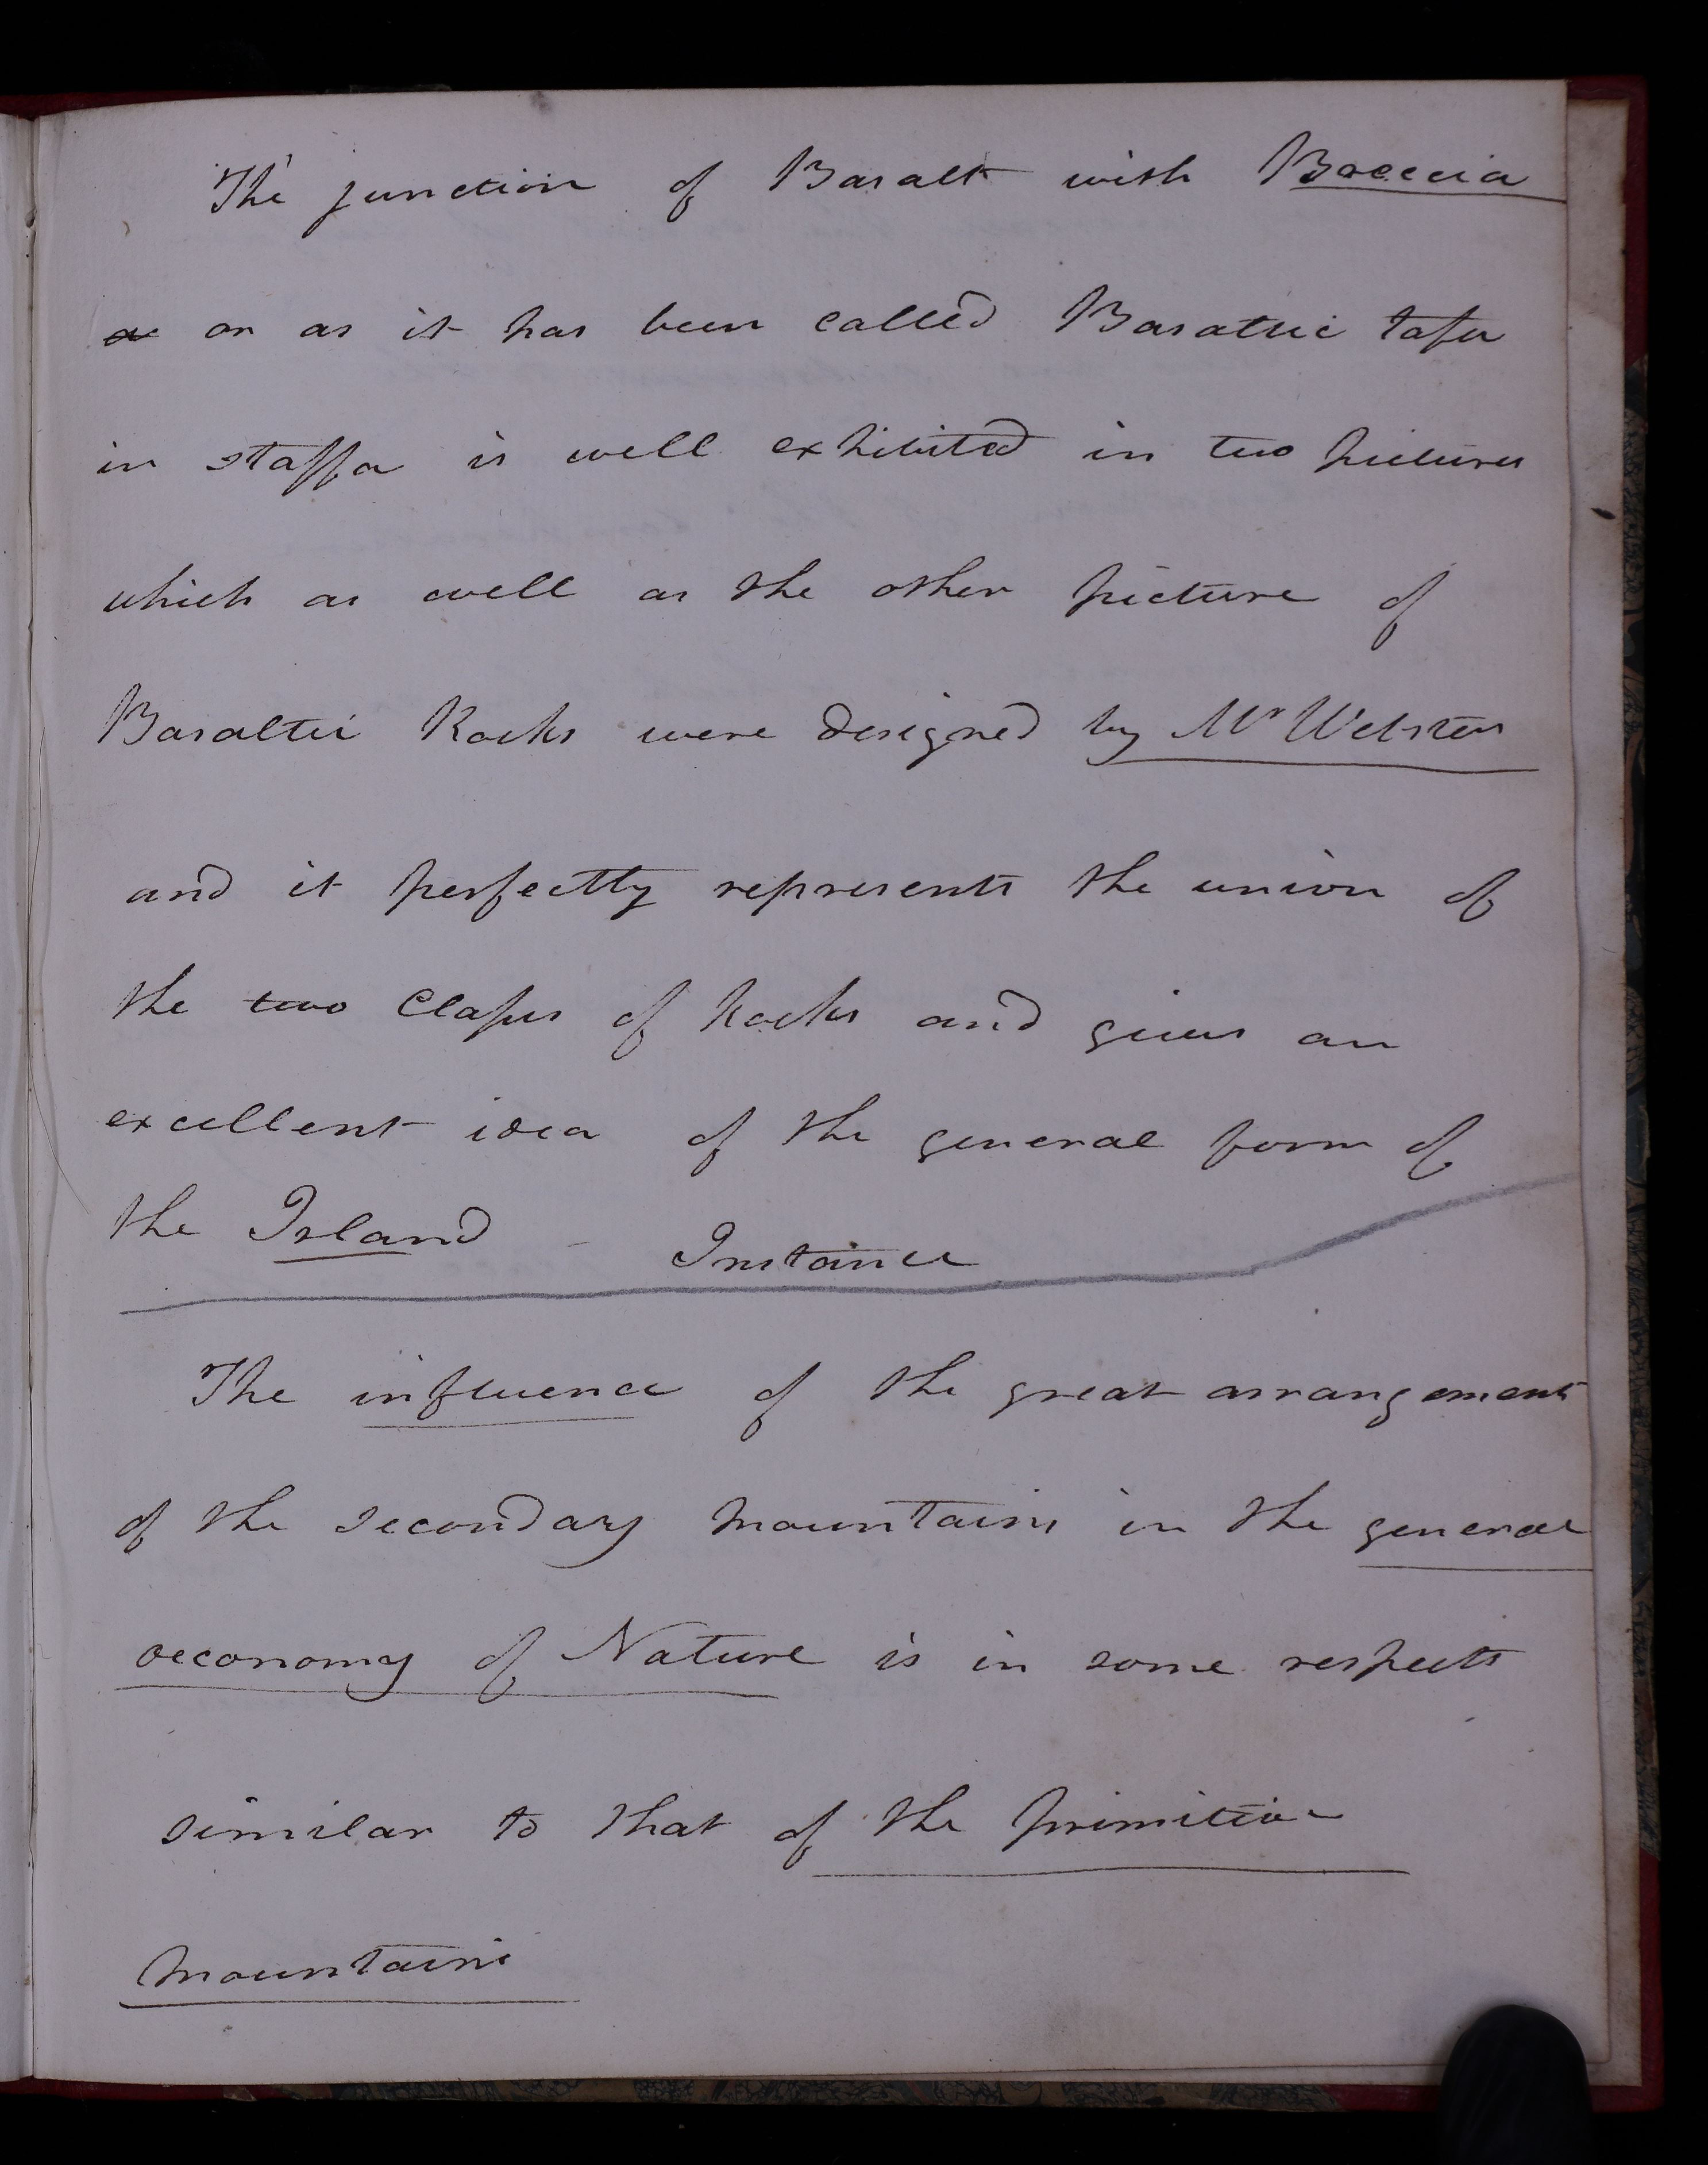 The junction of Basalt with Breccia
or as it has been called Basaltic tufa
in staffa is well exhibited in two pictures
which as well as the other picture of
Basaltic Rocks were designed by Mr Webster
and it perfectly represents the union of
the two Classes of Rocks and gives an
excellent idea of the general form of
the Island - Instance
The influence of the great arrangement
of the secondary mountains in the general
oeconomy of Nature is in some respects
similar to that of the primitive
mountains